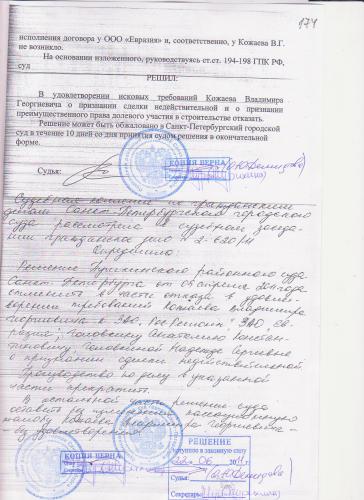 174
исполнения договора у ООО «Евразия» и, соответственно, у Кожаева В.Г.
не возникло.
На основании изложенного, руководствуясь ст.ст. 194-198 ГПК РФ,
суд
РЕШИЛ:
В удовлетворении исковых требований Кожаева Владимира
Георгиевича о признании сделки недействительной и о признании
преимущественного права долевого участия в строительстве отказать.
Решение может быть обжаловано в Санкт-Петербургский городской
суд в течение 10 дней со дня принятия судом решения в окончательной
форме.
КОПИЯ ВЕРНА
Судья:
Судебная коллегия по гражданским
делам Санкт-Петербургского городского
суда рассмотрела в судебном заседа-
нии гражданское дело № 2-620/11
Определила:
Решение Пушкинского районного суда
Санкт-Петербурга от 05 апреля 2011 года
отменить в части отказа в удовлет-
ворении требований Кожаева Владимира
Георгиевича к ЗАО, ЗАО „Ев-
разия", Головенку Анатолию Констан-
тиновичу, Головенкой Надежде Сергеевне
о признании сделки недействительной
Производство по делу в указанной
части прекратить.
В остальной части решение суда
оставить без изменения, кассационную
жалобу Кожаева Владимира Георгиевича -
без удовлетворения.
КОПИЯ ВЕРНА
РЕШЕНИЕ
вступило в законную силу
06 2011
Судья:
Секретарь